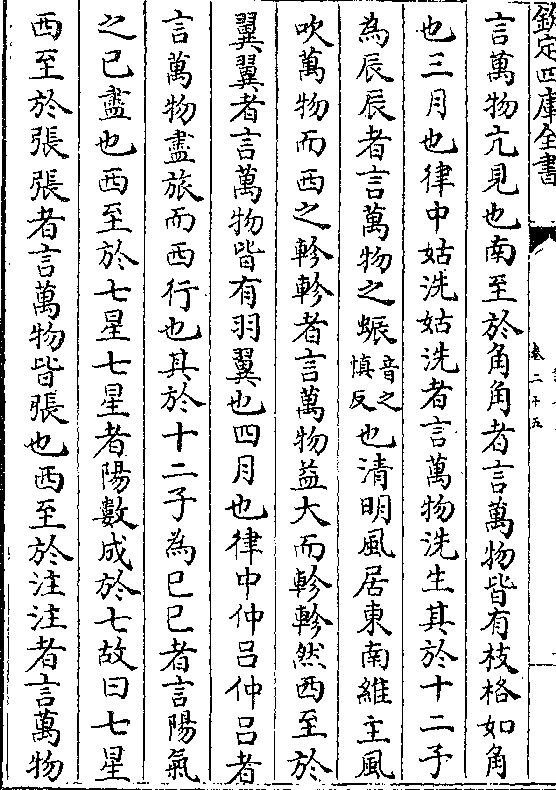 欽定四庫全書
卷二十五
言萬物亢見也南至於角角者言萬物皆有枝格如角
也三月也律中姑洗姑洗者言萬物洗生其於十二子
為辰辰者言萬物之蜄音之慎反也清明風居東南維主風
吹萬物而西之軫軫者言萬物益大而軫軫然西至於
翼翼者言萬物皆有羽翼也四月也律中仲呂仲呂者
言萬物盡旅而西行也其於十二子為巳巳者言陽氣
之已盡也西至於七星七星者陽數成於七故曰七星
西至於張張者言萬物皆張也西至於注注者言萬物